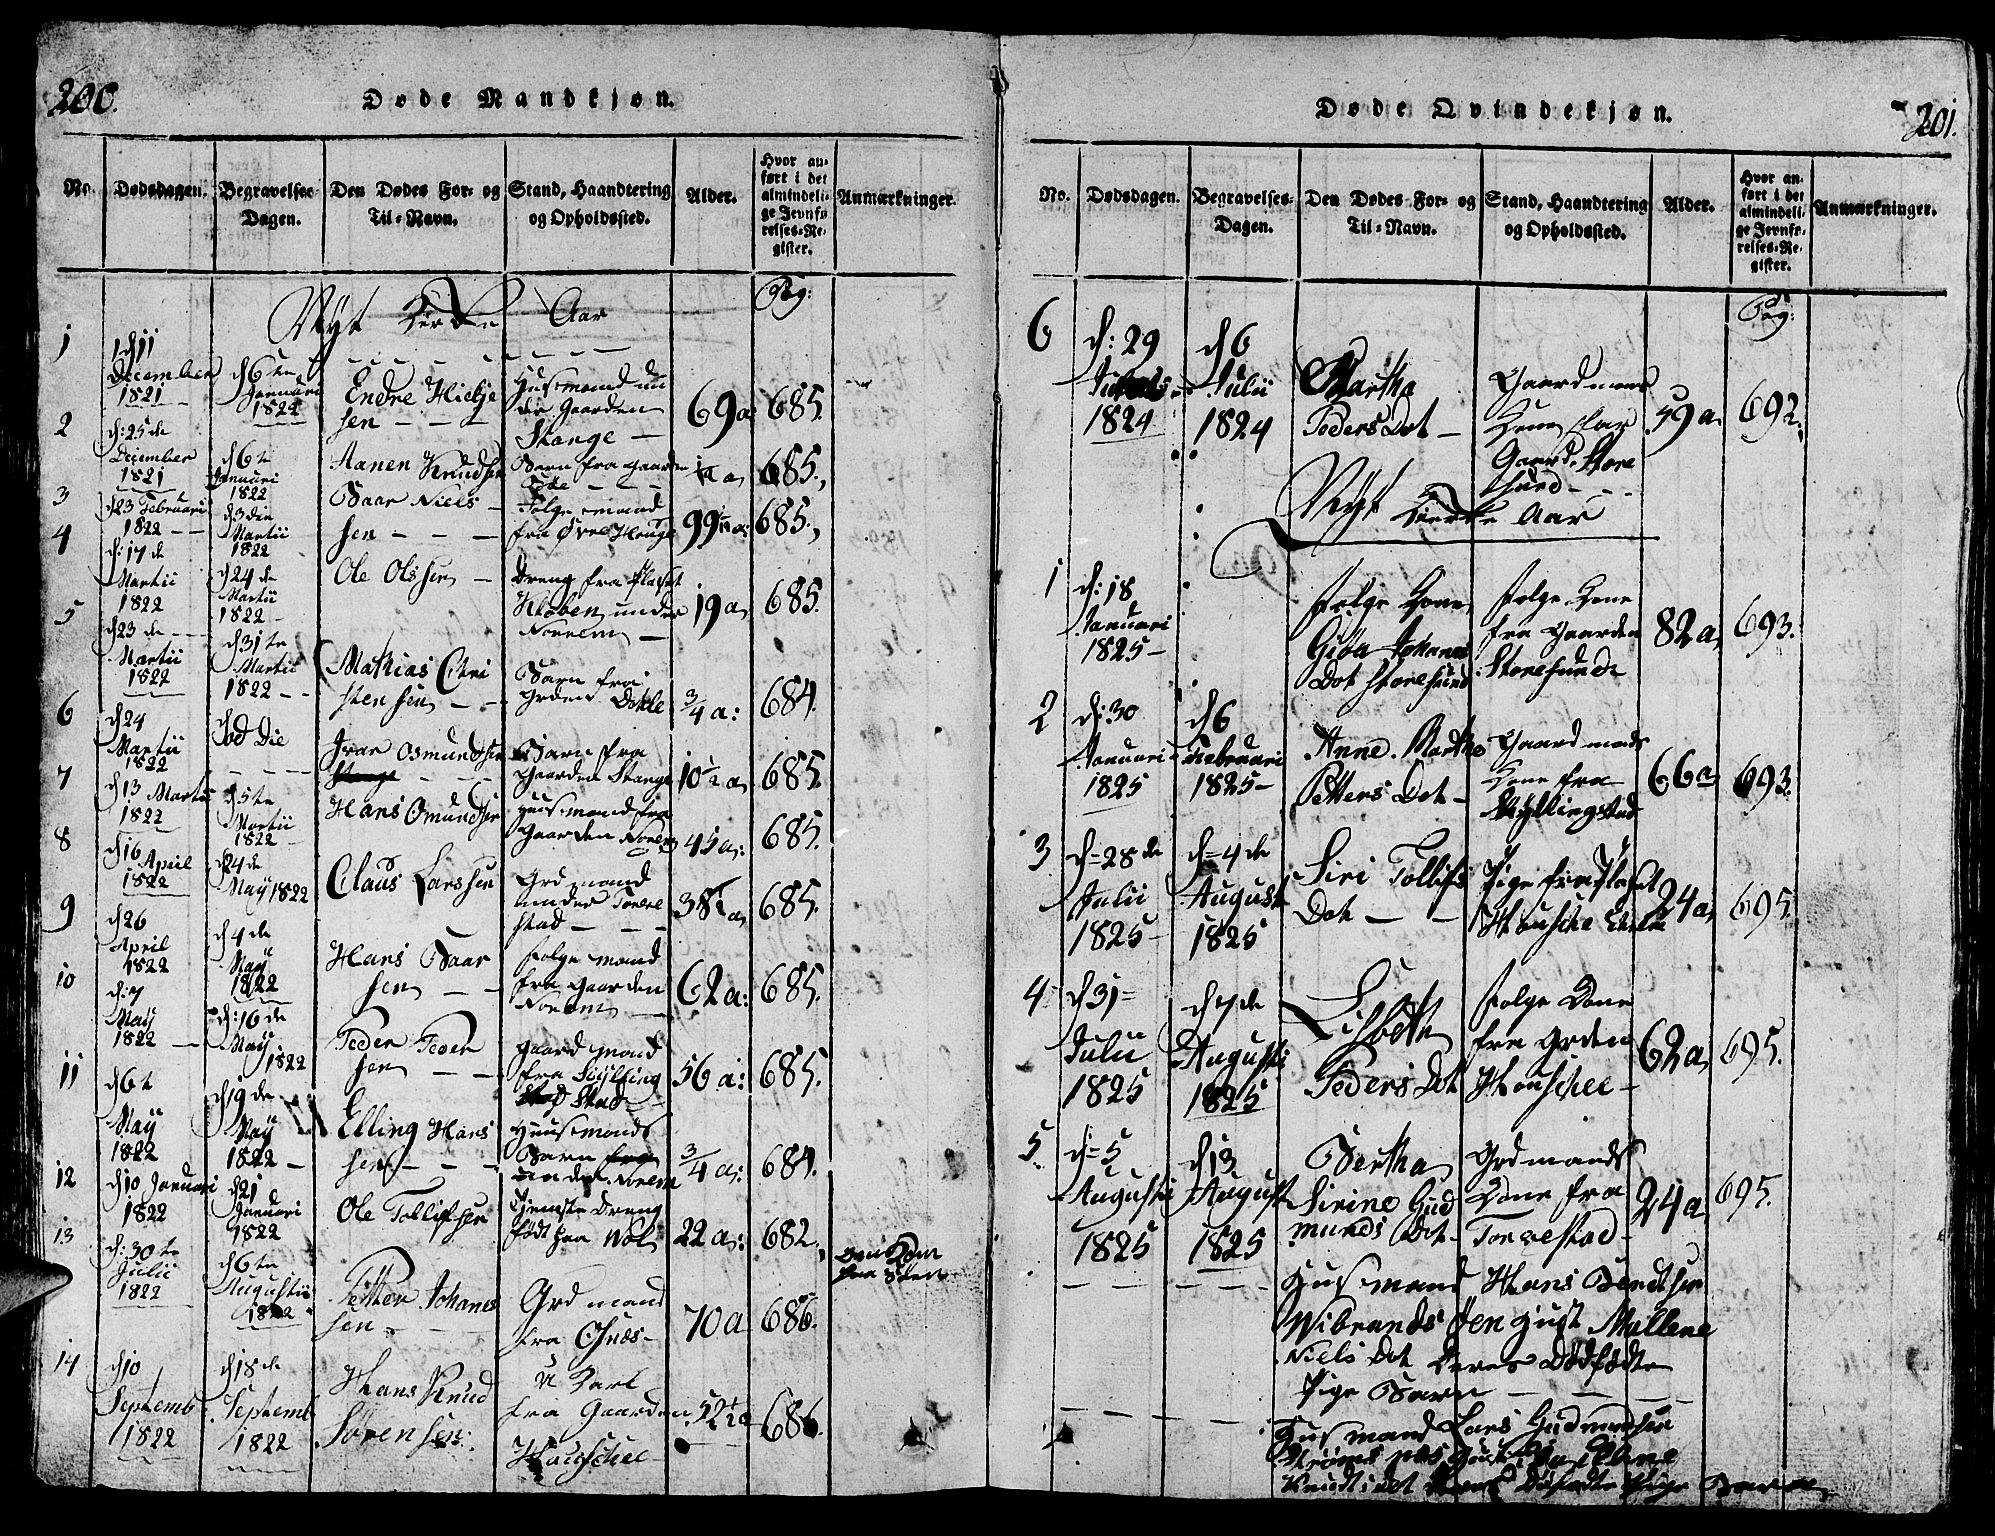 200.
Døde Mandkjøn.
No.
Dødsdagen.
Begravelses-
Dagen.
Den Dødes For- og
Til-Navn.
Stand, Haandtering
og Opholdssted.
Alder.
Hvor an-
ført i det
almindeli-
ge Jevnfø-
relses-Re-
gister.
Anmærkninger.
Nyt Kirke Aar
Pag:
1
d 11
December
1821
d 6te
Januari
1822
Endre
sen
Huusmand un
der Gaarden
Stange
69 a
685.
2
d: 25 de
December
1821
d 6te
Januari
1822
Aanen Knudsen
Barn fra Gaarden
685.
3
d 23 Februari
1822
d 3 die
Martii
1822
Baar Niels
sen
Folge mand
fra Øvre Hauge
99
685.
4
d: 17 de
Martii
1822
d 24 de
Martii
1822
Ole Olssen
Dreng fra Plaset
under
Norem
19 a
685.
5
d 23 de
Martii
1822
d 31 te
Martii
1822
Mathias Chri
stensen
Barn fra
Grden
3/4 a:
684.
6
d 24
Martii
1822
Ivar Osmundsen
Barn fra
Gaarden Stange
10 1/2 a
685.
7
d 13 Martii
1822
d 5 te
Martii
1822
Hans Omundsen
Huusmand fra
Gaarden Norem
45 a:
685.
8
d 16
April
1822
d 4 de
May 1822
Claus Larssen
Grd mand
under Torve
stad
685.
9
d 26
April
1822
d 4 de
May
1822
Hans Baar
sen
Folge mand
fra Gaarden
Norem
62 a:
685.
10
d: 7
May
1822
d: 16 de
May
1822
Peder Peder
sen
Gaard mand
fra
Stad
56 a:
685.
11
d 6 t
May
1822
d 19 de
May
1822
Elling Hans
sen
Huusmands
Barn
under Norem
3/4 a:
684.
12
d 10 Januari
1822
d 21
Januari
1822
Ole Tollifsen
Tjeniste Dreng
født paa
22 a:
682.
13
d: 30 te
Julii
1822
d 6 te
Augustii
1822
Petter Johanes
sen
Grd mand
fra
70 a
686.
14
d 10
Septemb
1822
d 18 de
Septemb
1822
Hans Knud
Sørensen
U Karl
fra Gaarden
Houschee
52 1/2 a
686.
201.
Døde Qvindekjøn.
No.
Dødsdagen.
Begravelses-
Dagen.
Den Dødes For- og
Til-Navn.
Stand, Haandtering
og Opholdssted.
Alder.
Hvor an-
ført i det
almindeli-
ge Jevnfø-
relses-Re-
gister.
Anmærkninger.
Pag:
6
d: 29
1824
d 6
Julii
1824
Martha
Peders Dot
Gaardmans
Kone
Gaard. Store
sund
59 a
692.
Nyt Kierke Aar
1
d: 18
Januari
1825
Folge Kone
Giøa Johanes
Dot Storesund
Folge Kone
fra Gaarden
Storesunde
82 a
693.
2
d: 30
Januari
1825
d 6
Februari
1825
Anne. Martha
Petters Dot
Gaard mands
Kone fra
66 a
693.
3
d= 28 de
Julii
1825
d= 4 de
August
1825
Siri Tollifs
Dot
Pige fra Plaset
24 a
695.
4
d 31=
Julii
1825
d 7 de
Augusti
1825
Lisbeth
Peders Dot
Folge Kone
fra Grden
Houschee
62 a
695.
5
d= 5
Augusti
1825
d 13
August
1825
Bertha
Sirine Gud
munds Dot
Grdmands
Kone fra
Torvestad
24 a
695.
Husmand Hans Bendtsen
Wibrands øen Hust Mallene
Niels Dot deres Dødfødte
Pige Barn
Husmand Lars Gudmundsen
Knudts Dot deres Dødfødte Pige Barn